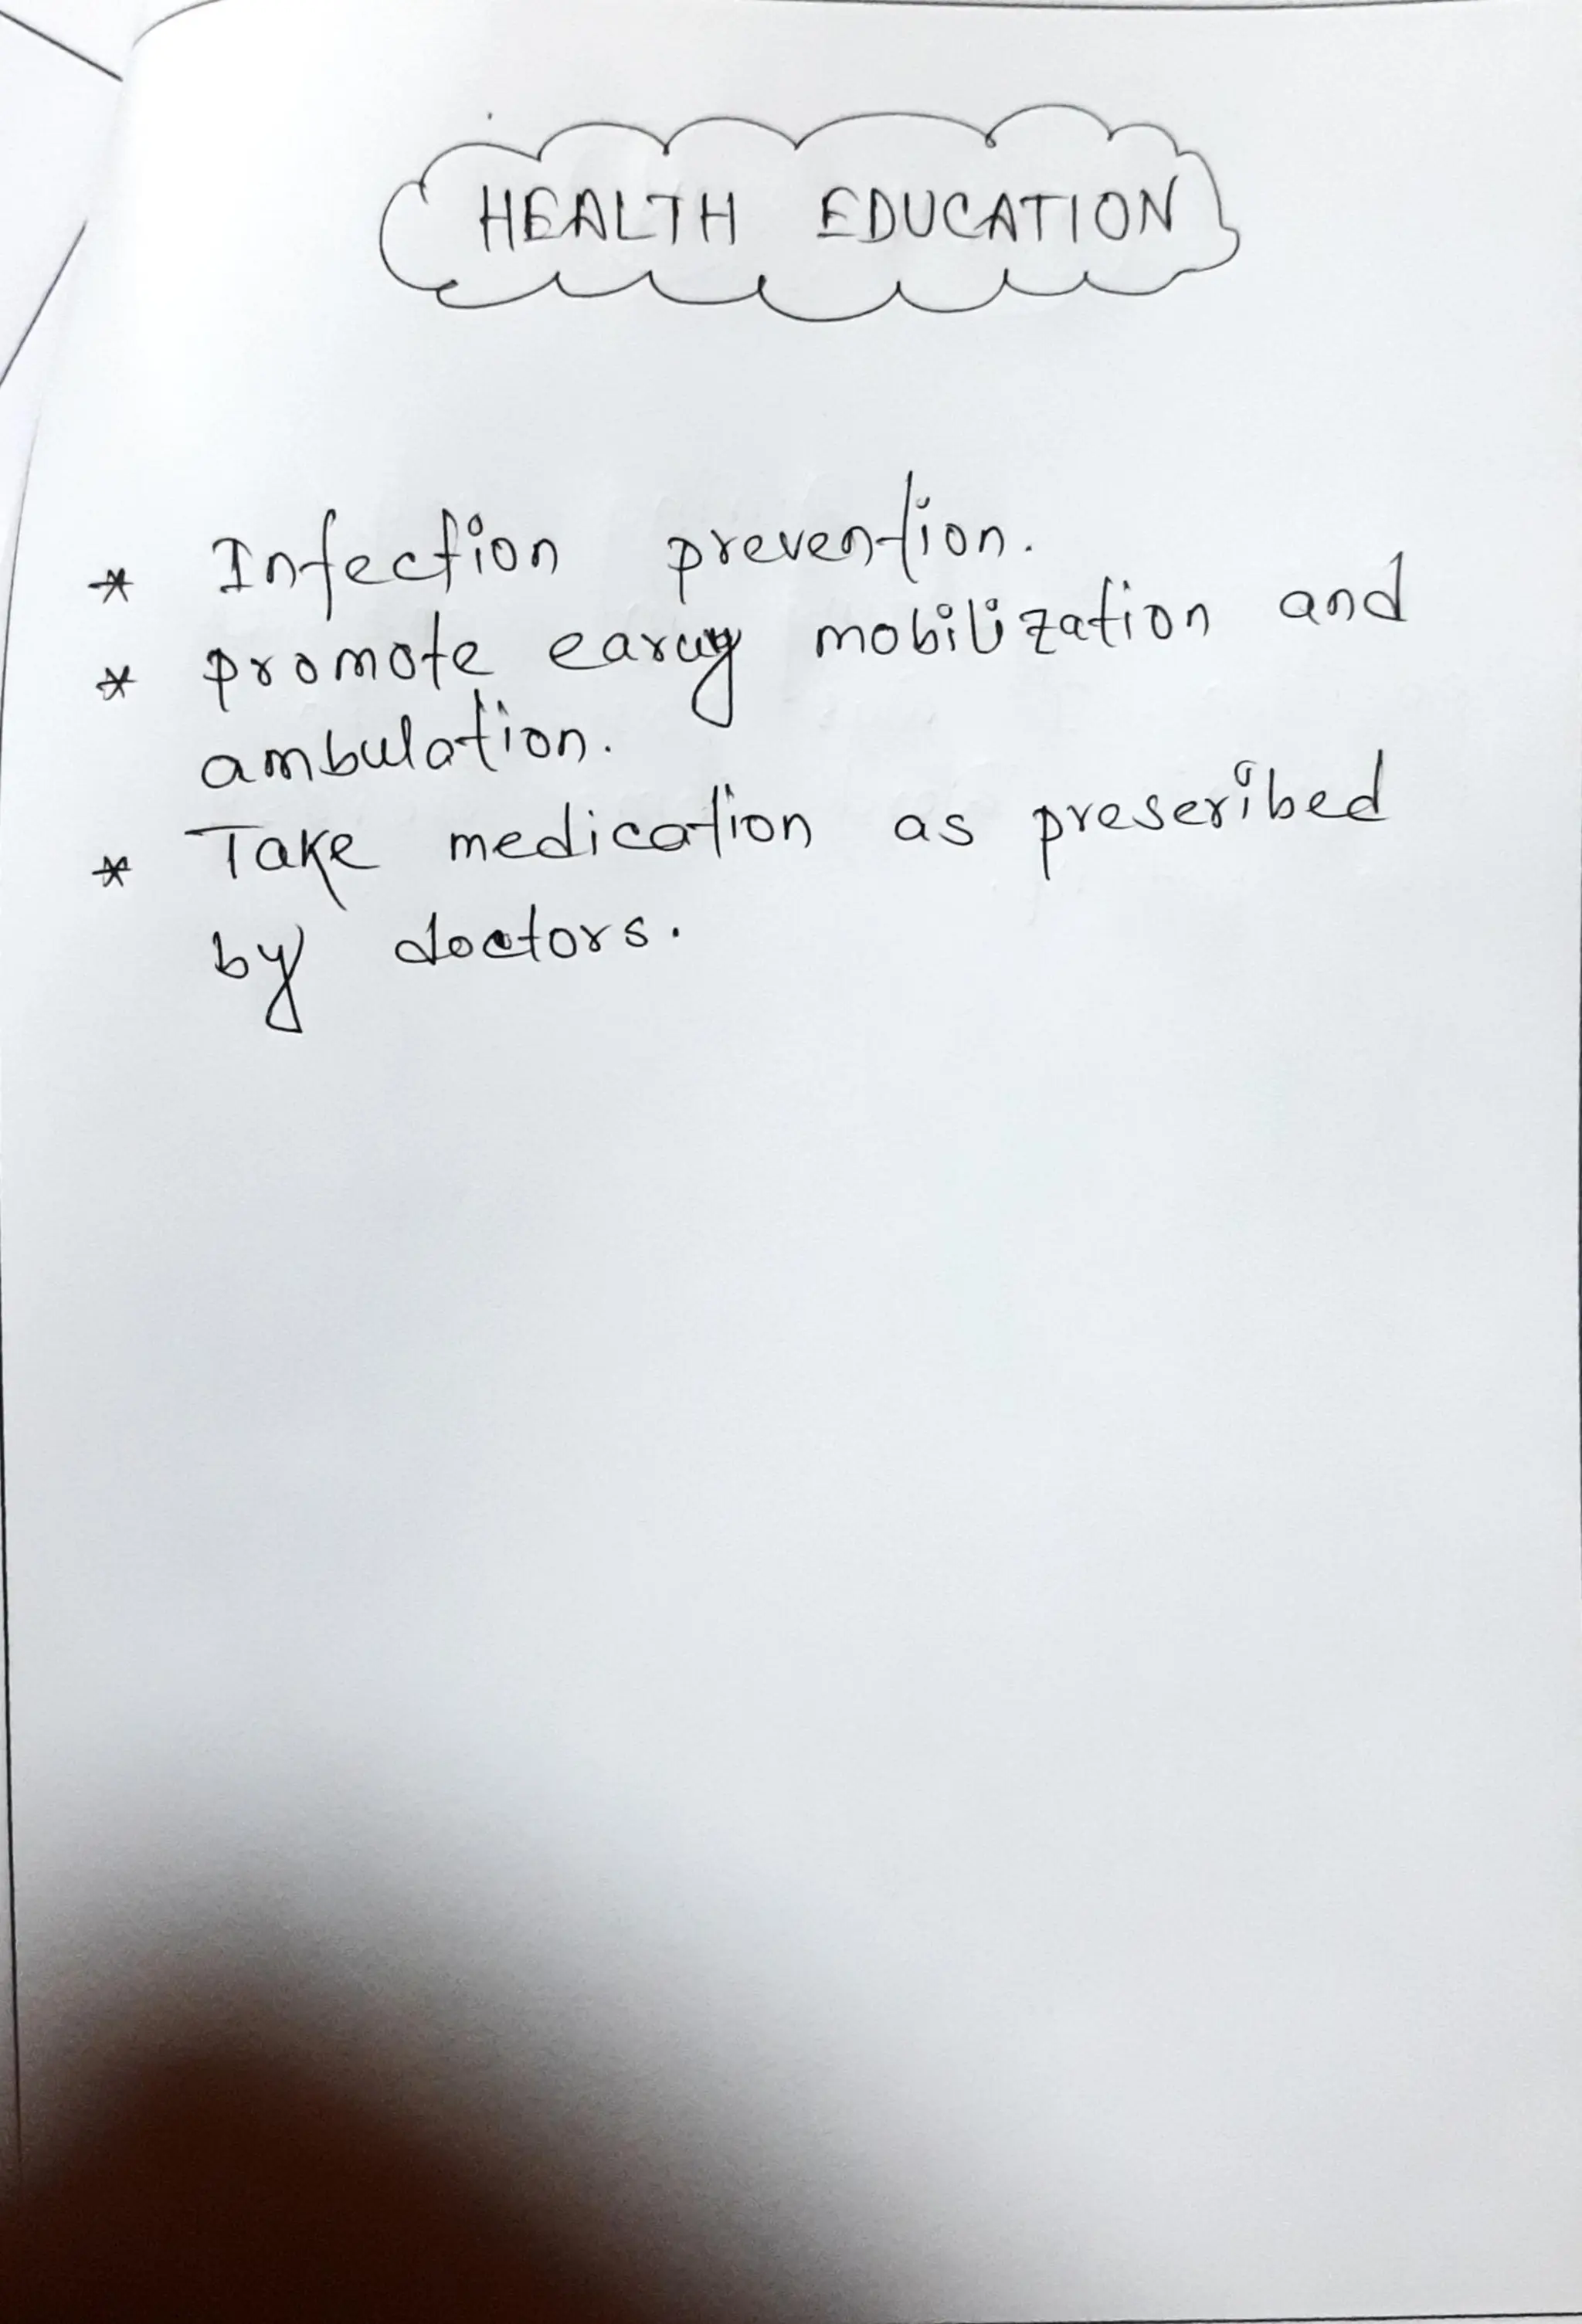 HEALTH EDUCATION
* Infection prevention.
* promote early mobilization and
ambulation.
* Take medication as prescribed
by doctors.